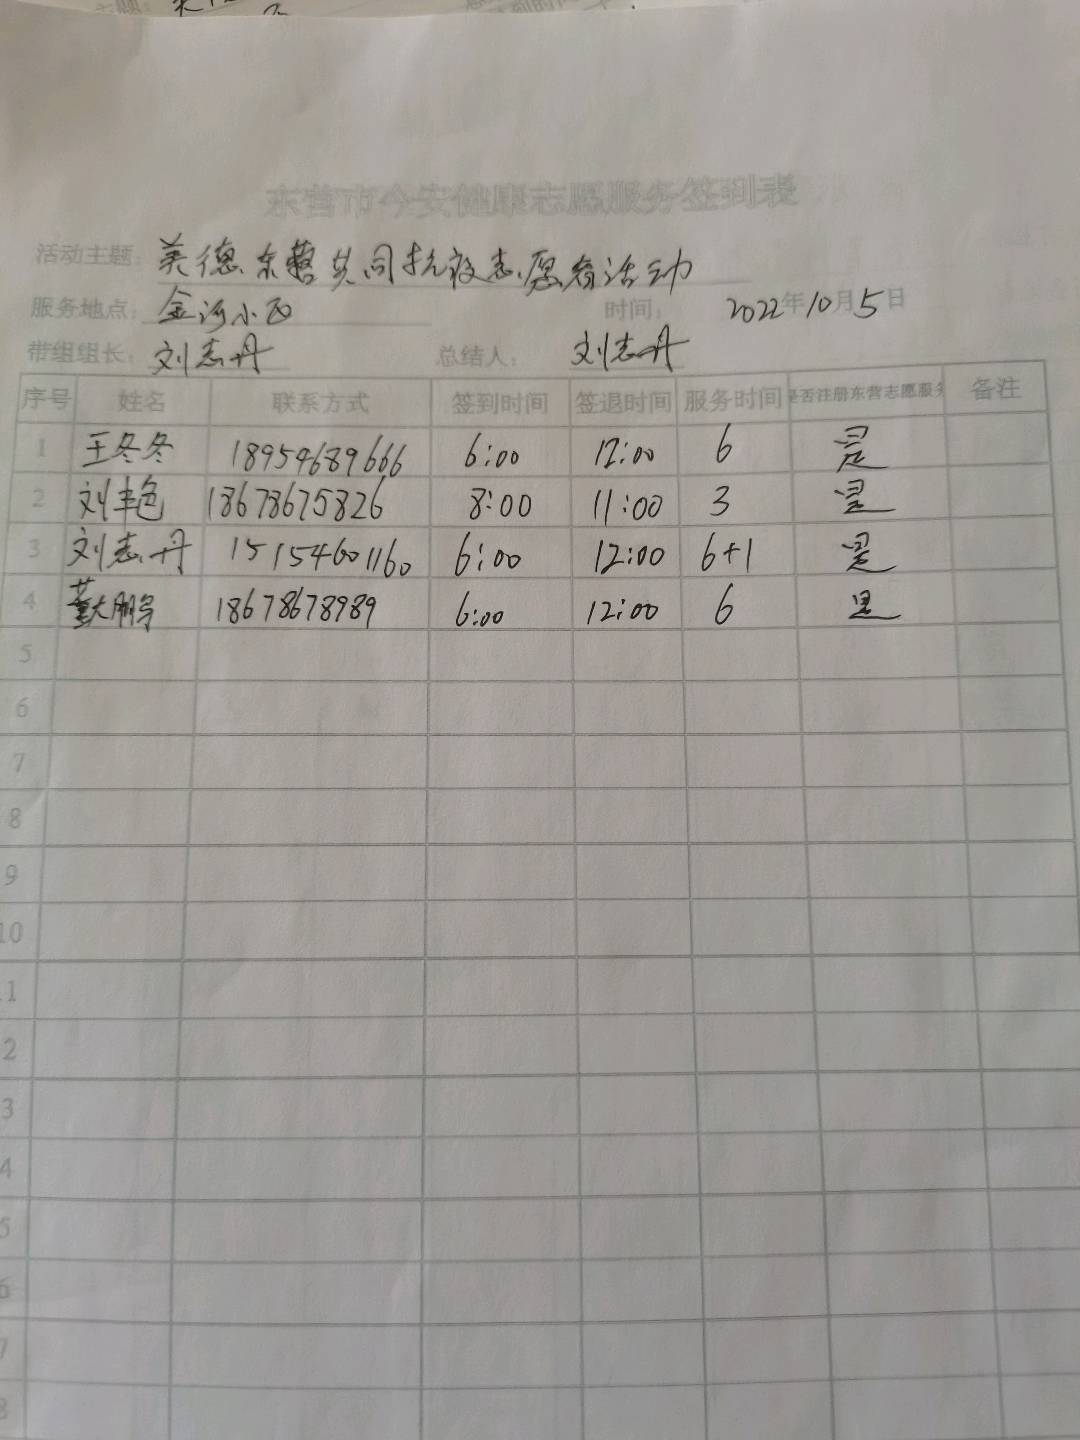 东营市今安健康志愿服务签到表
活动主题： 美德东营共同抗疫志愿者活动
服务地点： 金河小区 时间： 2022年10月5日
带组组长： 刘志丹 总结人： 刘志丹
序号 姓名 联系方式 签到时间 签退时间 服务时间 是否注册东营志愿服务 备注
1 王冬冬 18954689666 6:00 12:00 6 是
2 刘丰色 18678675826 8:00 11:00 3 是
3 刘志丹 15154601160 6:00 12:00 6+1 是
4 董大鹏 18678678989 6:00 12:00 6 是
5
6
7
8
9
10
1
2
3
4
5
6
7
8